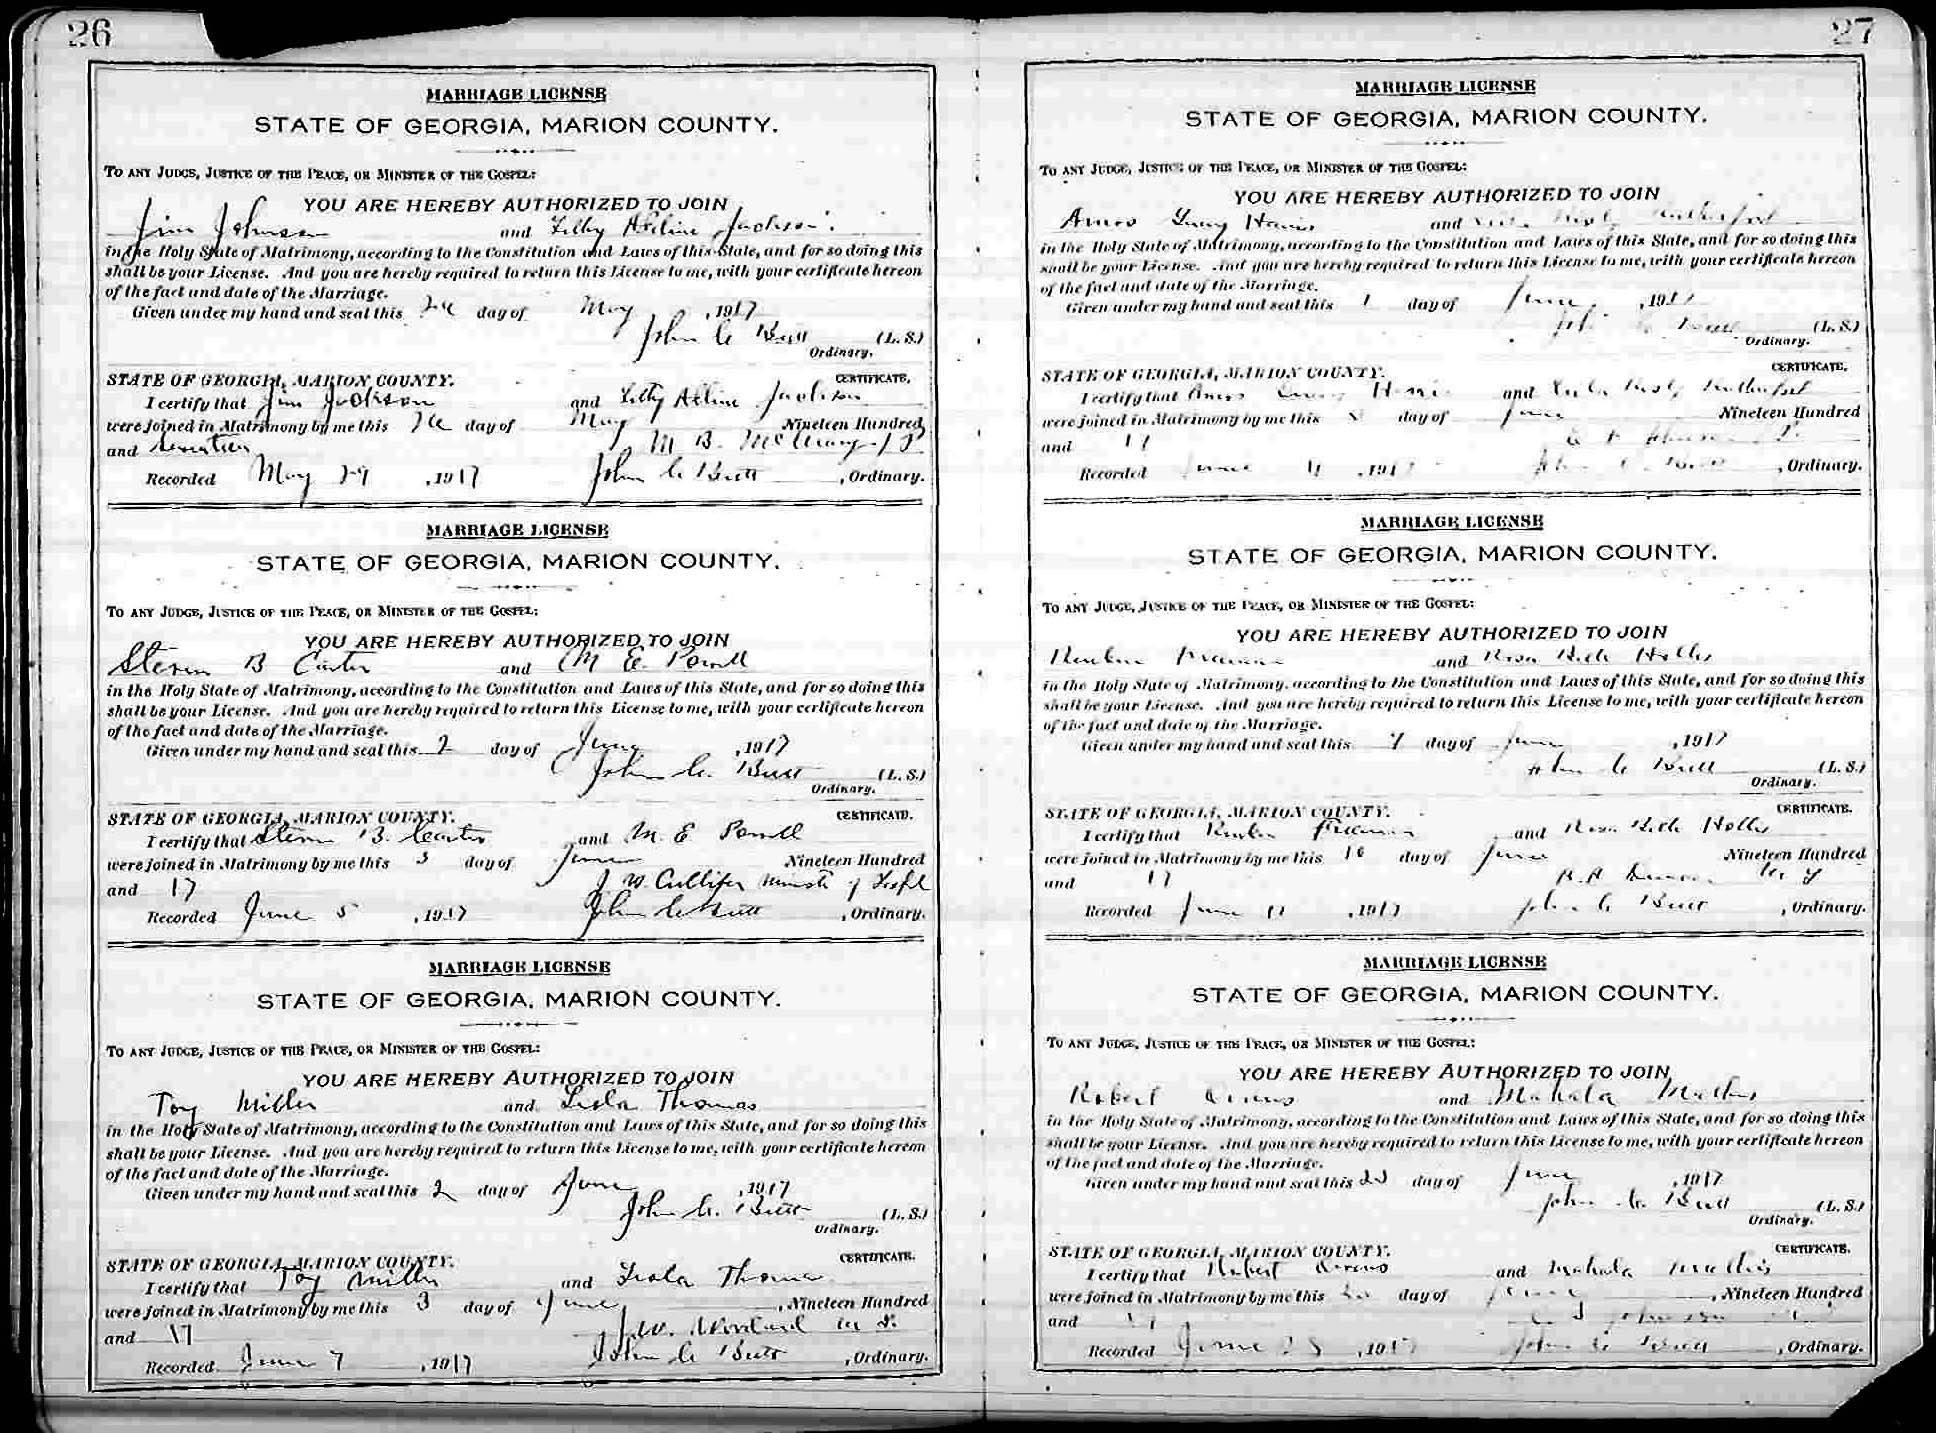 26
MARRIAGE LICENSE
STATE OF GEORGIA, MARION COUNTY.
TO ANY JUDGE, JUSTICE OF THE PEACE, OR MINISTER OF THE GOSPEL:
YOU ARE HEREBY AUTHORIZED TO JOIN
Jim Johnson and Jackson
in the Holy State of Matrimony, according to the Constitution and Laws of this State, and for so doing this
shall be your License. And you are hereby required to return this License to me, with your certificate hereon
of the fact and date of the Marriage.
Given under my hand and seal this day of May, 1917
John C Butt (L. S.)
Ordinary.
STATE OF GEORGIA, MARION COUNTY. CERTIFICATE.
I certify that Jim Jackson and Jackson
were joined in Matrimony by me this day of May Nineteen Hundred
and Seventeen M B
Recorded May 29, 1917 John C Butt, Ordinary.
MARRIAGE LICENSE
STATE OF GEORGIA, MARION COUNTY.
TO ANY JUDGE, JUSTICE OF THE PEACE, OR MINISTER OF THE GOSPEL:
YOU ARE HEREBY AUTHORIZED TO JOIN
B Carter and M E. Powell
in the Holy State of Matrimony, according to the Constitution and Laws of this State, and for so doing this
shall be your License. And you are hereby required to return this License to me, with your certificate hereon
of the fact and date of the Marriage.
Given under my hand and seal this 2 day of June, 1917
John C. Butt (L. S.)
Ordinary.
STATE OF GEORGIA, MARION COUNTY. CERTIFICATE.
I certify that B. Carter and M. E Powell
were joined in Matrimony by me this 3 day of June Nineteen Hundred
and 17 J W. Cullifer
Recorded June 5, 1917 John C Butt, Ordinary.
MARRIAGE LICENSE
STATE OF GEORGIA, MARION COUNTY.
TO ANY JUDGE, JUSTICE OF THE PEACE, OR MINISTER OF THE GOSPEL:
YOU ARE HEREBY AUTHORIZED TO JOIN
Toy Miller and Thomas
in the Holy State of Matrimony, according to the Constitution and Laws of this State, and for so doing this
shall be your License. And you are hereby required to return this License to me, with your certificate hereon
of the fact and date of the Marriage.
Given under my hand and seal this 2 day of June, 1917
John C. Butt (L. S.)
Ordinary.
STATE OF GEORGIA, MARION COUNTY. CERTIFICATE.
I certify that Toy Miller and Thomas
were joined in Matrimony by me this 3 day of June, Nineteen Hundred
and 17 J. W. Woodard
Recorded June 7, 1917 John C Butt, Ordinary.
27
MARRIAGE LICENSE
STATE OF GEORGIA, MARION COUNTY.
TO ANY JUDGE, JUSTICE OF THE PEACE, OR MINISTER OF THE GOSPEL:
YOU ARE HEREBY AUTHORIZED TO JOIN
Amos and Rutherford
in the Holy State of Matrimony, according to the Constitution and Laws of this State, and for so doing this
shall be your License. And you are hereby required to return this License to me, with your certificate hereon
of the fact and date of the Marriage.
Given under my hand and seal this day of June, 1917
John C Butt (L. S.)
Ordinary.
STATE OF GEORGIA, MARION COUNTY. CERTIFICATE.
I certify that Amos and Rutherford
were joined in Matrimony by me this day of June Nineteen Hundred
and 17
Recorded June, 1917 John C. Butt, Ordinary.
MARRIAGE LICENSE
STATE OF GEORGIA, MARION COUNTY.
TO ANY JUDGE, JUSTICE OF THE PEACE, OR MINISTER OF THE GOSPEL:
YOU ARE HEREBY AUTHORIZED TO JOIN
Freeman and Rosa Belle Hollis
in the Holy State of Matrimony, according to the Constitution and Laws of this State, and for so doing this
shall be your License. And you are hereby required to return this License to me, with your certificate hereon
of the fact and date of the Marriage.
Given under my hand and seal this day of June, 1917
John C Butt (L. S.)
Ordinary.
STATE OF GEORGIA, MARION COUNTY. CERTIFICATE.
I certify that Freeman and Rosa Belle Hollis
were joined in Matrimony by me this 10 day of June Nineteen Hundred
and 17
Recorded June, 1917 John C Butt, Ordinary.
MARRIAGE LICENSE
STATE OF GEORGIA, MARION COUNTY.
TO ANY JUDGE, JUSTICE OF THE PEACE, OR MINISTER OF THE GOSPEL:
YOU ARE HEREBY AUTHORIZED TO JOIN
Robert Owens and Mahala Mathis
in the Holy State of Matrimony, according to the Constitution and Laws of this State, and for so doing this
shall be your License. And you are hereby required to return this License to me, with your certificate hereon
of the fact and date of the Marriage.
Given under my hand and seal this day of June, 1917
John C. Butt (L. S.)
Ordinary.
STATE OF GEORGIA, MARION COUNTY. CERTIFICATE.
I certify that Robert Owens and Mahala Mathis
were joined in Matrimony by me this day of June, Nineteen Hundred
and 17 Johnson
Recorded June 28, 1917 John C Butt, Ordinary.